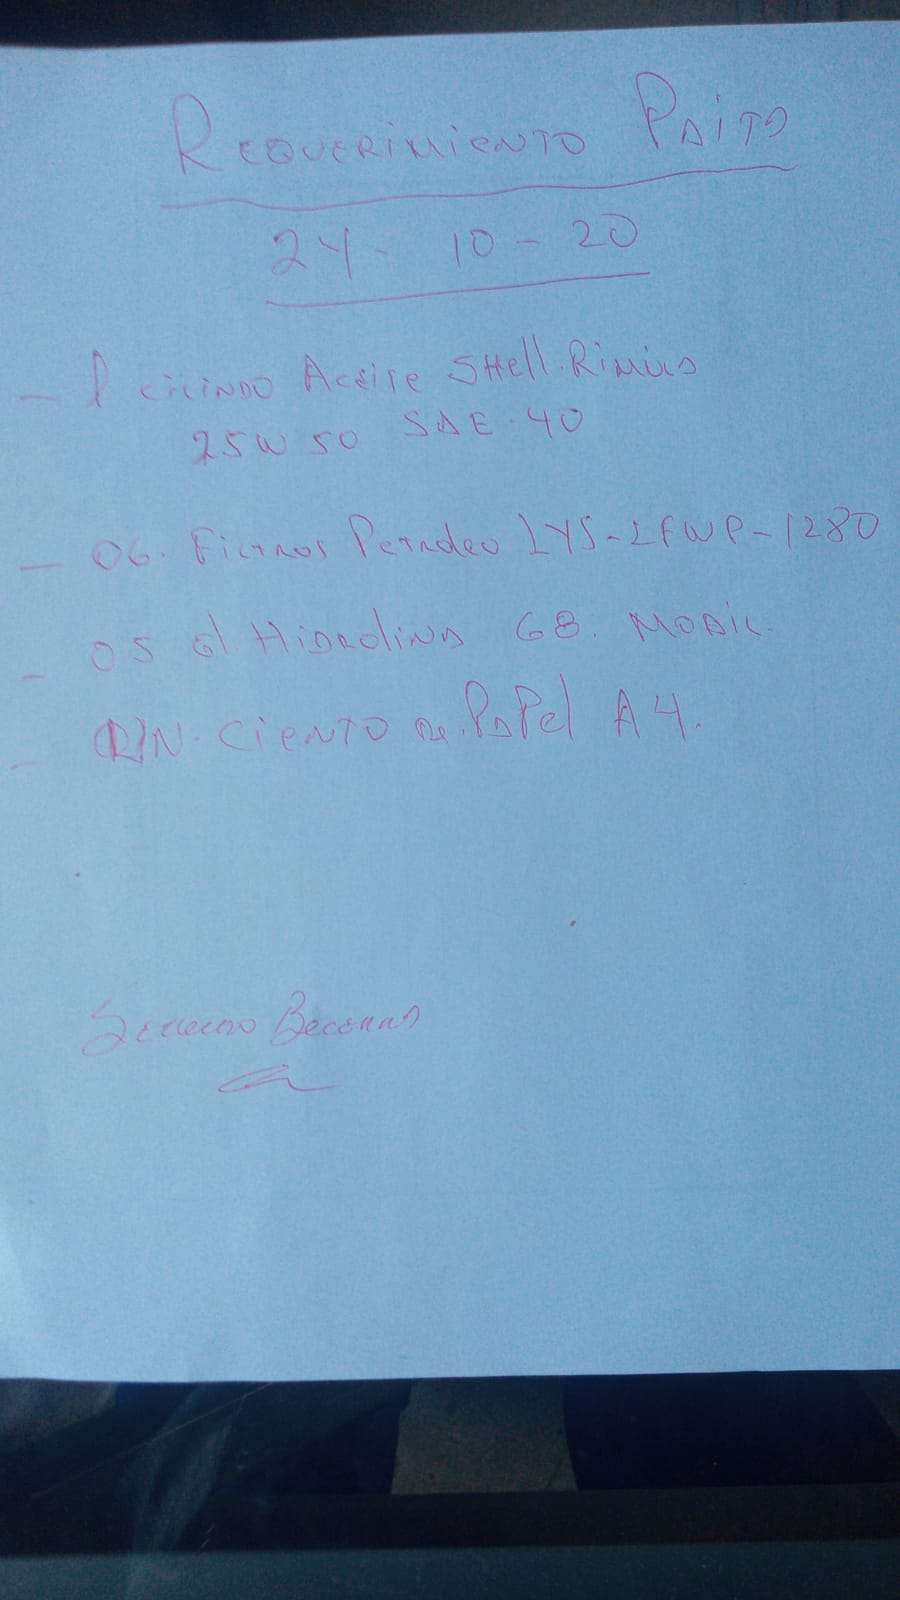 REQUERIMIENTO PAITA
24-10-20
- 1 CILINDO ACEITE SHell. RiMULA
25W 50 SAE-40
- 06. FILTROS PETROLEO LYS-LFWP-1280
- 05 gl HIDROLINA 68. MOBIL
- UN. CIENTO DE. PAPEL A4.
BECERRA